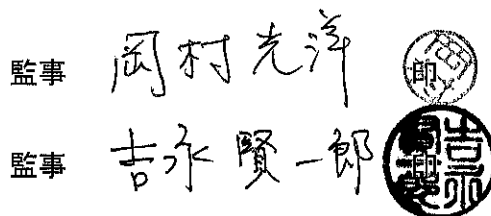 監事 岡村光洋 印
監事 吉永賢一郎